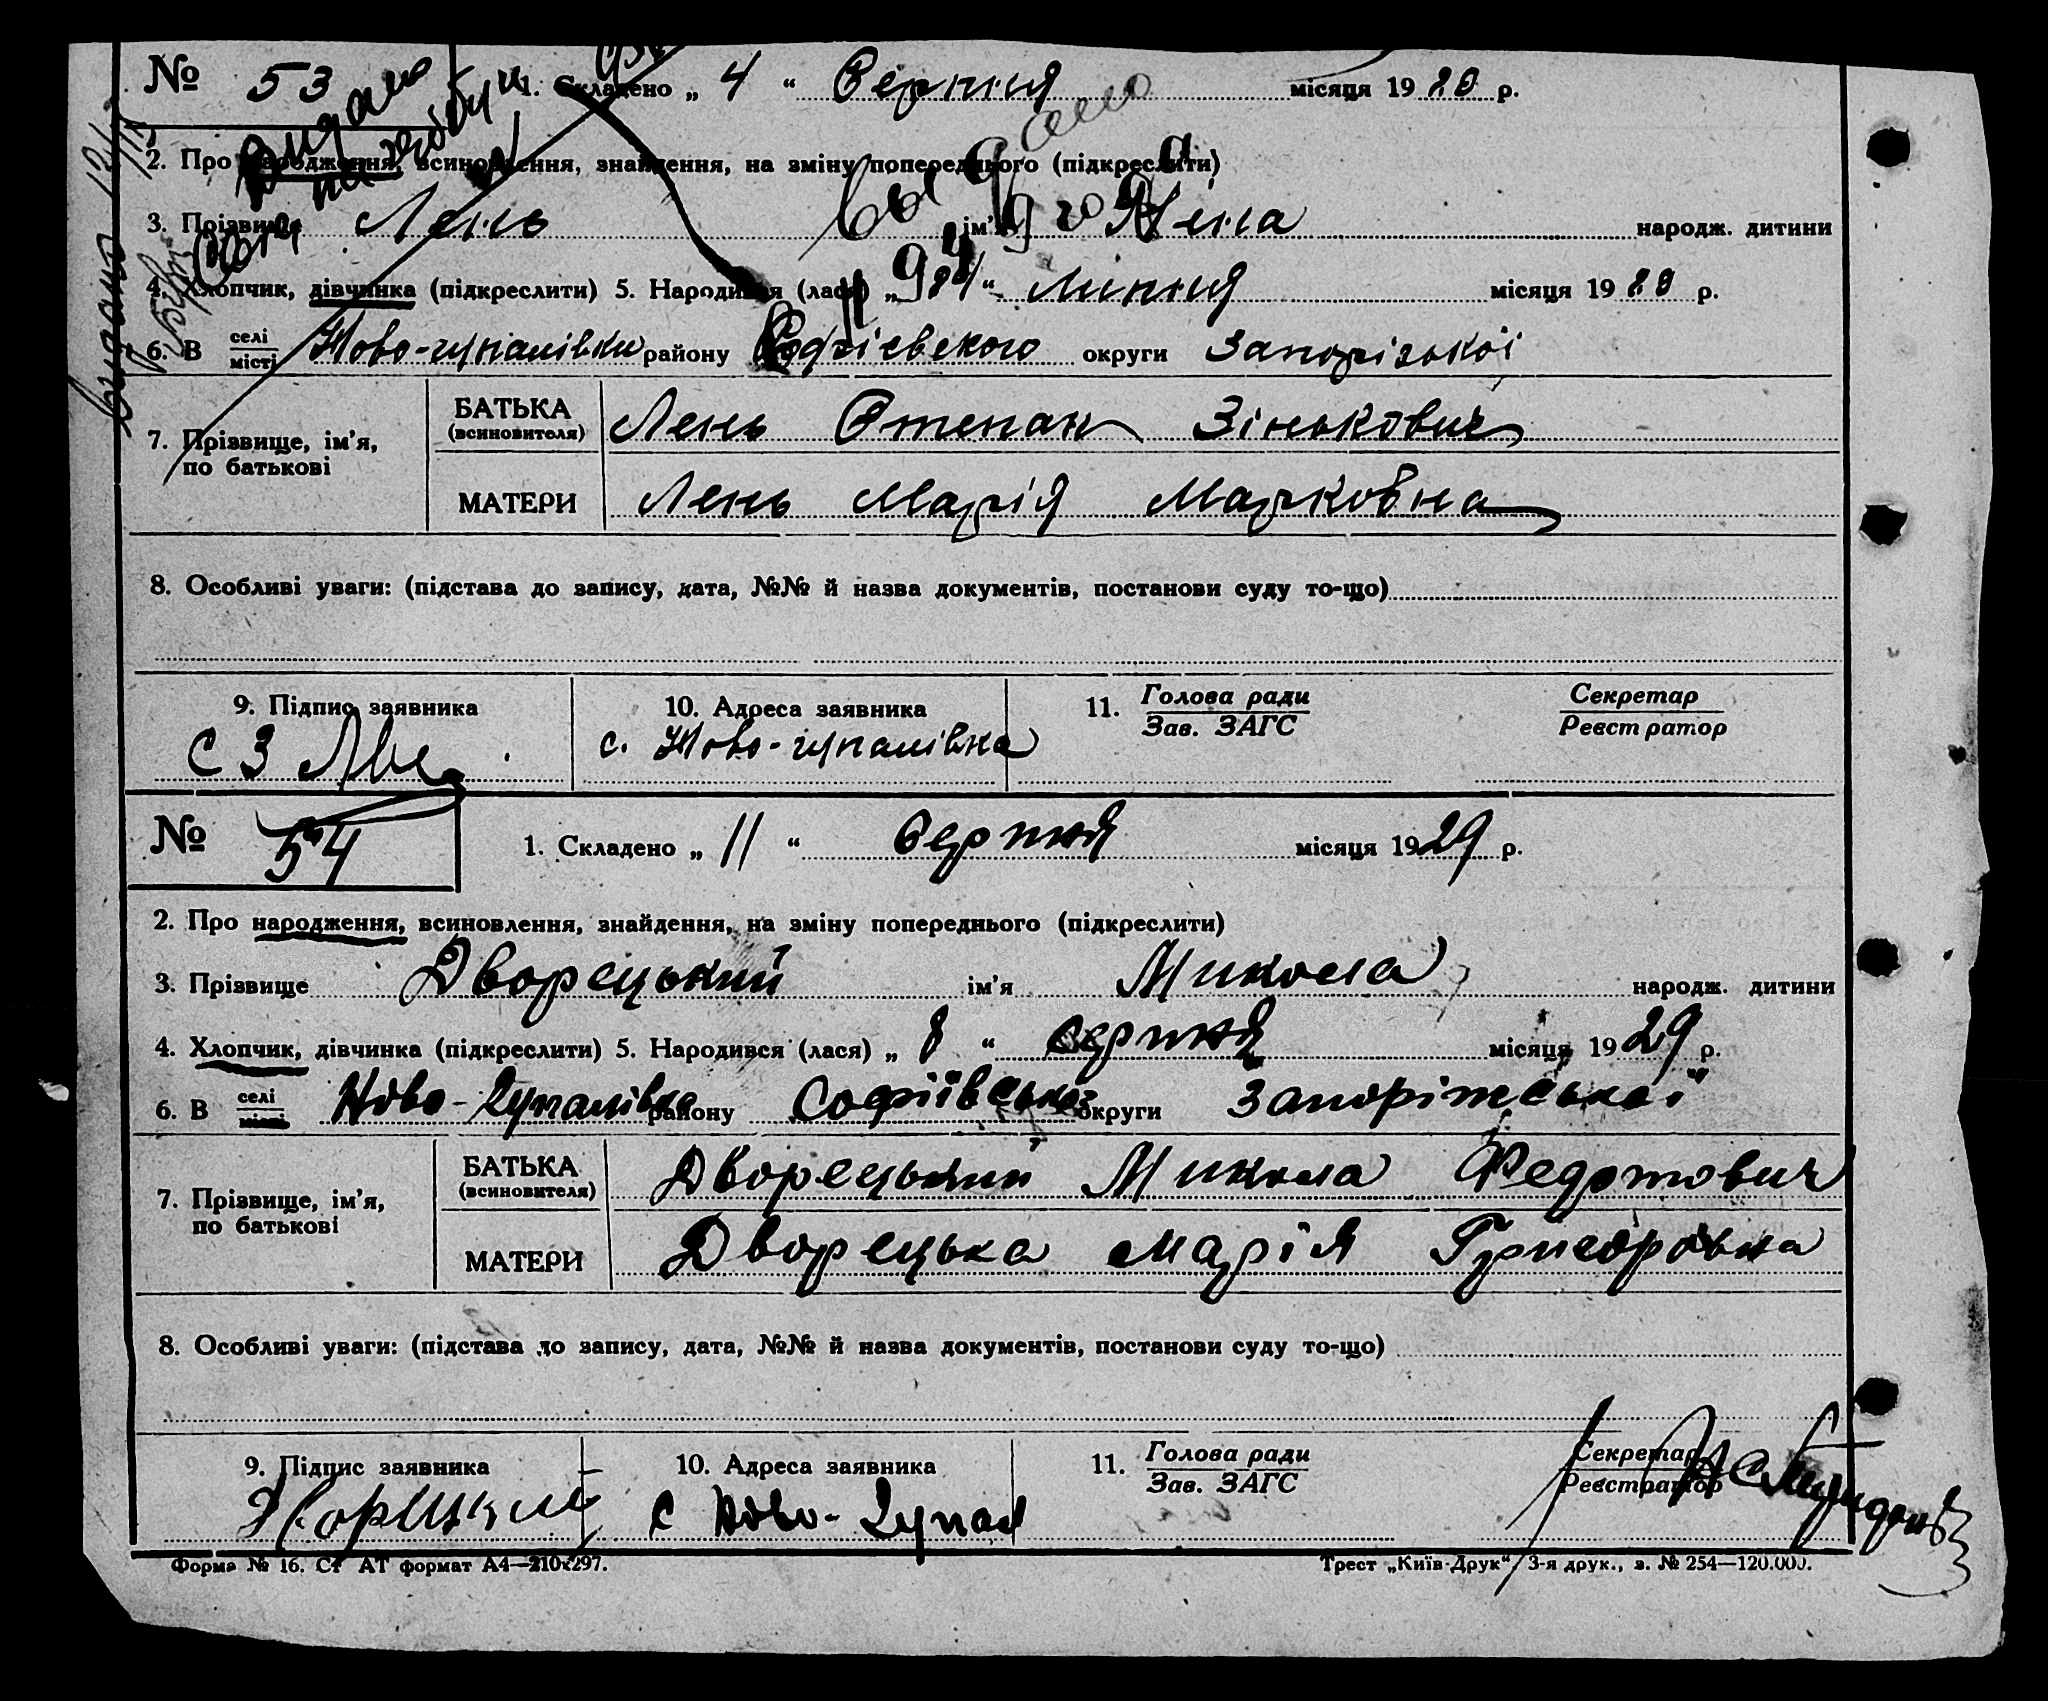 № 53 1. Складено „ 4 “ Серпня місяця 1929 р.
2. Про народження, всиновлення, знайдення, на зміну попереднього (підкреслити)
3. Прізвище Лень ім'я народж. дитини
4. Хлопчик, дівчинка (підкреслити) 5. Народився (лася) „ “ Липня місяця 1929 р.
6. В селі/місті Ново-гупалівки району Софіевского округи Запорізької
7. Прізвище, ім'я, по батькові
БАТЬКА (всиновителя) Лень Степан Зінькович
МАТЕРИ Лень Марія Марковна
8. Особливі уваги: (підстава до запису, дата, №№ й назва документів, постанови суду то-що)
9. Підпис заявника 10. Адреса заявника 11. Голова ради/Зав. ЗАГС Секретар/Реєстратор
С З с. Ново-гупалівка
Видано
№ 54 1. Складено „ 11 “ Серпня місяця 1929 р.
2. Про народження, всиновлення, знайдення, на зміну попереднього (підкреслити)
3. Прізвище Дворецький ім'я Микола народж. дитини
4. Хлопчик, дівчинка (підкреслити) 5. Народився (лася) „ 8 “ серпня місяця 1929 р.
6. В селі/місті Ново-Гупалівка району Софіївсько округи Запоріжської
7. Прізвище, ім'я, по батькові
БАТЬКА (всиновителя) Дворецький Микола Федотович
МАТЕРИ Дворецька Марія Григоровна
8. Особливі уваги: (підстава до запису, дата, №№ й назва документів, постанови суду то-що)
9. Підпис заявника 10. Адреса заявника 11. Голова ради/Зав. ЗАГС Секретар/Реєстратор
с Ново-Гупал
Форма № 16. Ст АТ формат А4—210х297. Трест „Київ-Друк“ 3-я друк., з. № 254—120.000.